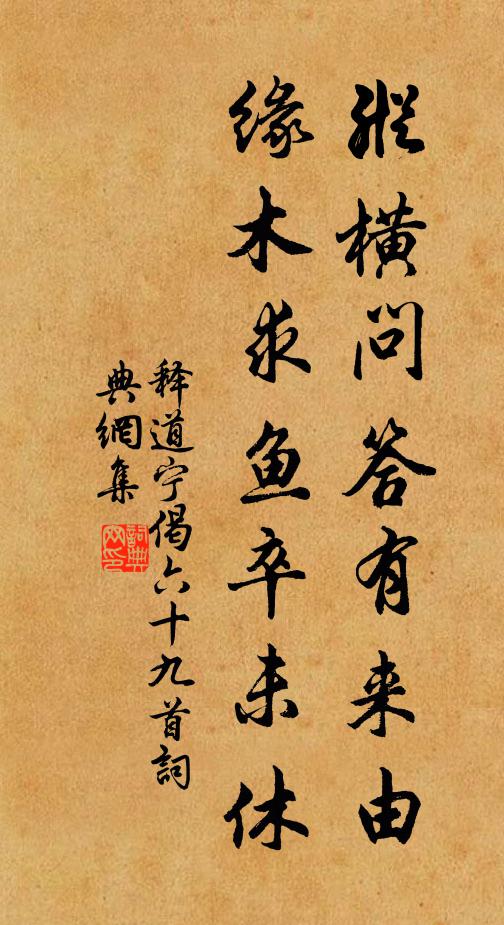 縱横问答有来由
缘木求鱼卒未休
释道宁偈六十九首詞
典網集
詞典网印